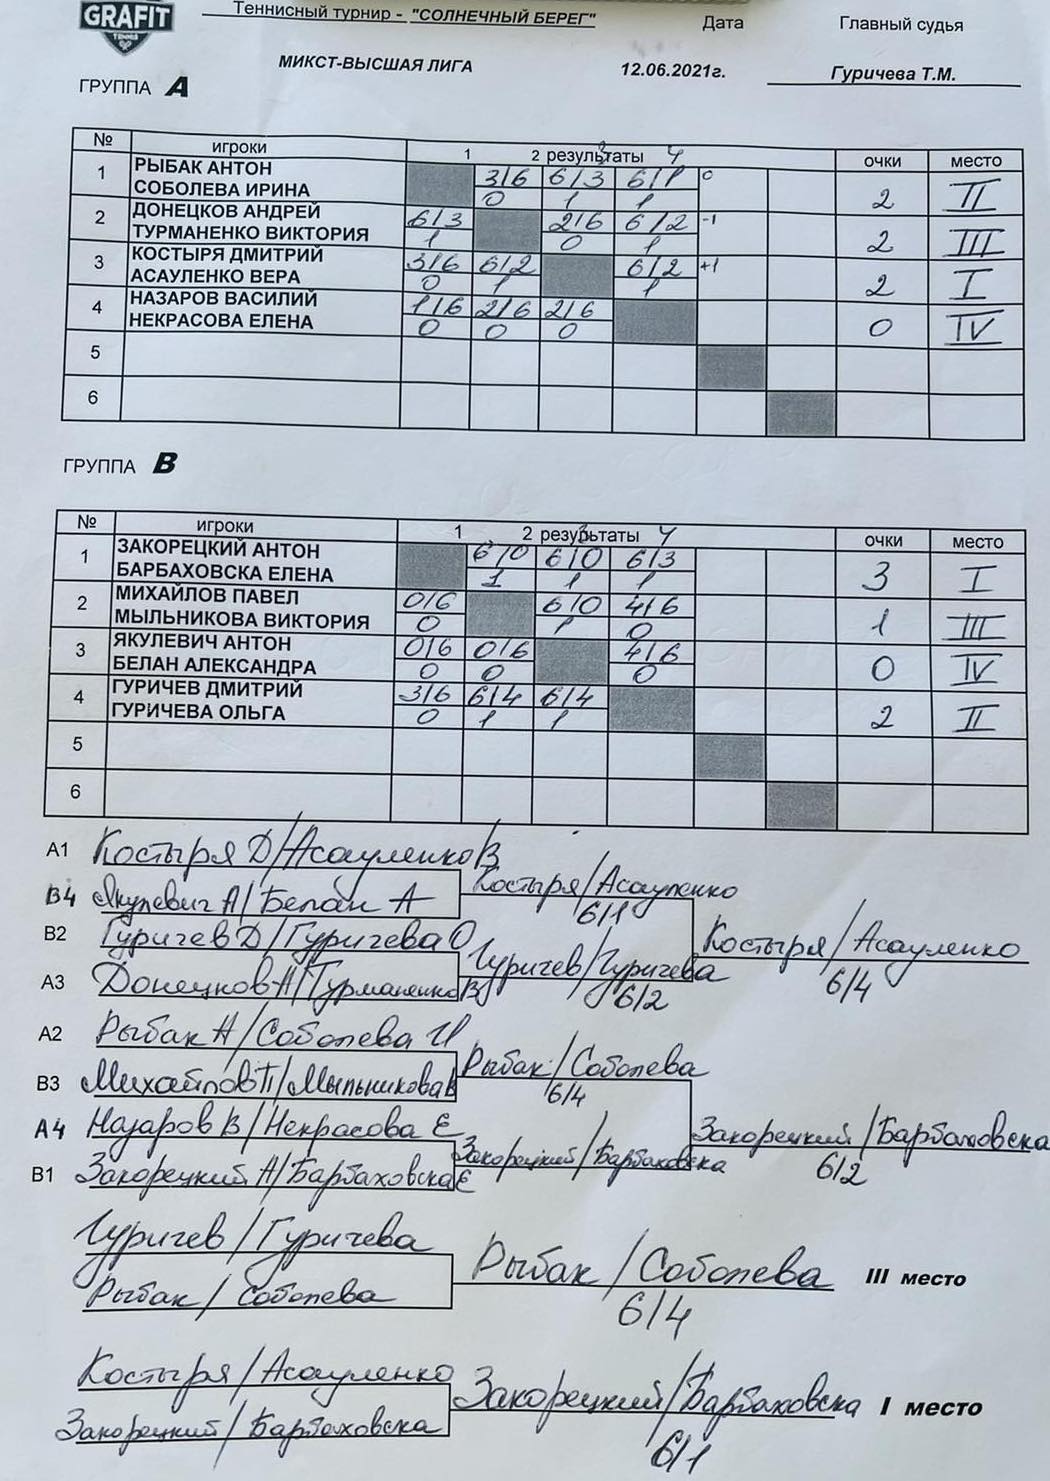 GRAFIT
TENNIS
Теннисный турнир - "СОЛНЕЧНЫЙ БЕРЕГ"
Дата
Главный судья
МИКСТ-ВЫСШАЯ ЛИГА
12.06.2021г.
Гуричева Т.М.
ГРУППА А
№ игроки 1 2 результаты 3 4 очки место
1 РЫБАК АНТОН 3/6 6/3 6/1 0
СОБОЛЕВА ИРИНА 0 1 1 2 II
2 ДОНЕЦКОВ АНДРЕЙ 6/3 2/6 6/2 -1
ТУРМАНЕНКО ВИКТОРИЯ 1 0 1 2 III
3 КОСТЫРЯ ДМИТРИЙ 3/6 6/2 6/2 +1
АСАУЛЕНКО ВЕРА 0 1 1 2 I
4 НАЗАРОВ ВАСИЛИЙ 1/6 2/6 2/6
НЕКРАСОВА ЕЛЕНА 0 0 0 0 IV
5
6
ГРУППА В
№ игроки 1 2 результаты 3 4 очки место
1 ЗАКОРЕЦКИЙ АНТОН 6/0 6/0 6/3
БАРБАХОВСКА ЕЛЕНА 1 1 1 3 I
2 МИХАЙЛОВ ПАВЕЛ 0/6 6/0 4/6
МЫЛЬНИКОВА ВИКТОРИЯ 0 1 0 1 III
3 ЯКУЛЕВИЧ АНТОН 0/6 0/6 4/6
БЕЛАН АЛЕКСАНДРА 0 0 0 0 IV
4 ГУРИЧЕВ ДМИТРИЙ 3/6 6/4 6/4
ГУРИЧЕВА ОЛЬГА 0 1 1 2 II
5
6
А1 Костыря Д/Асауленко В
Костыря/Асауленко
В4 Якулевич А/Белан А
6/1
В2 Гуричев Д/Гуричева О
Костыря/Асауленко
Гуричев/Гуричева
6/4
А3 Донецков А/Турманенко В
6/2
А2 Рыбак А/Соболева И
Рыбак/Соболева
В3 Михайлов П/Мыльникова В
6/4
А4 Назаров В/Некрасова Е
Закорецкий/Барбаховска
Закорецкий/Барбаховска
6/2
В1 Закорецкий А/Барбаховска Е
Гуричев/Гуричева
Рыбак/Соболева III место
Рыбак/Соболева
6/4
Костыря/Асауленко
Закорецкий/Барбаховска I место
Закорецкий/Барбаховска
6/1